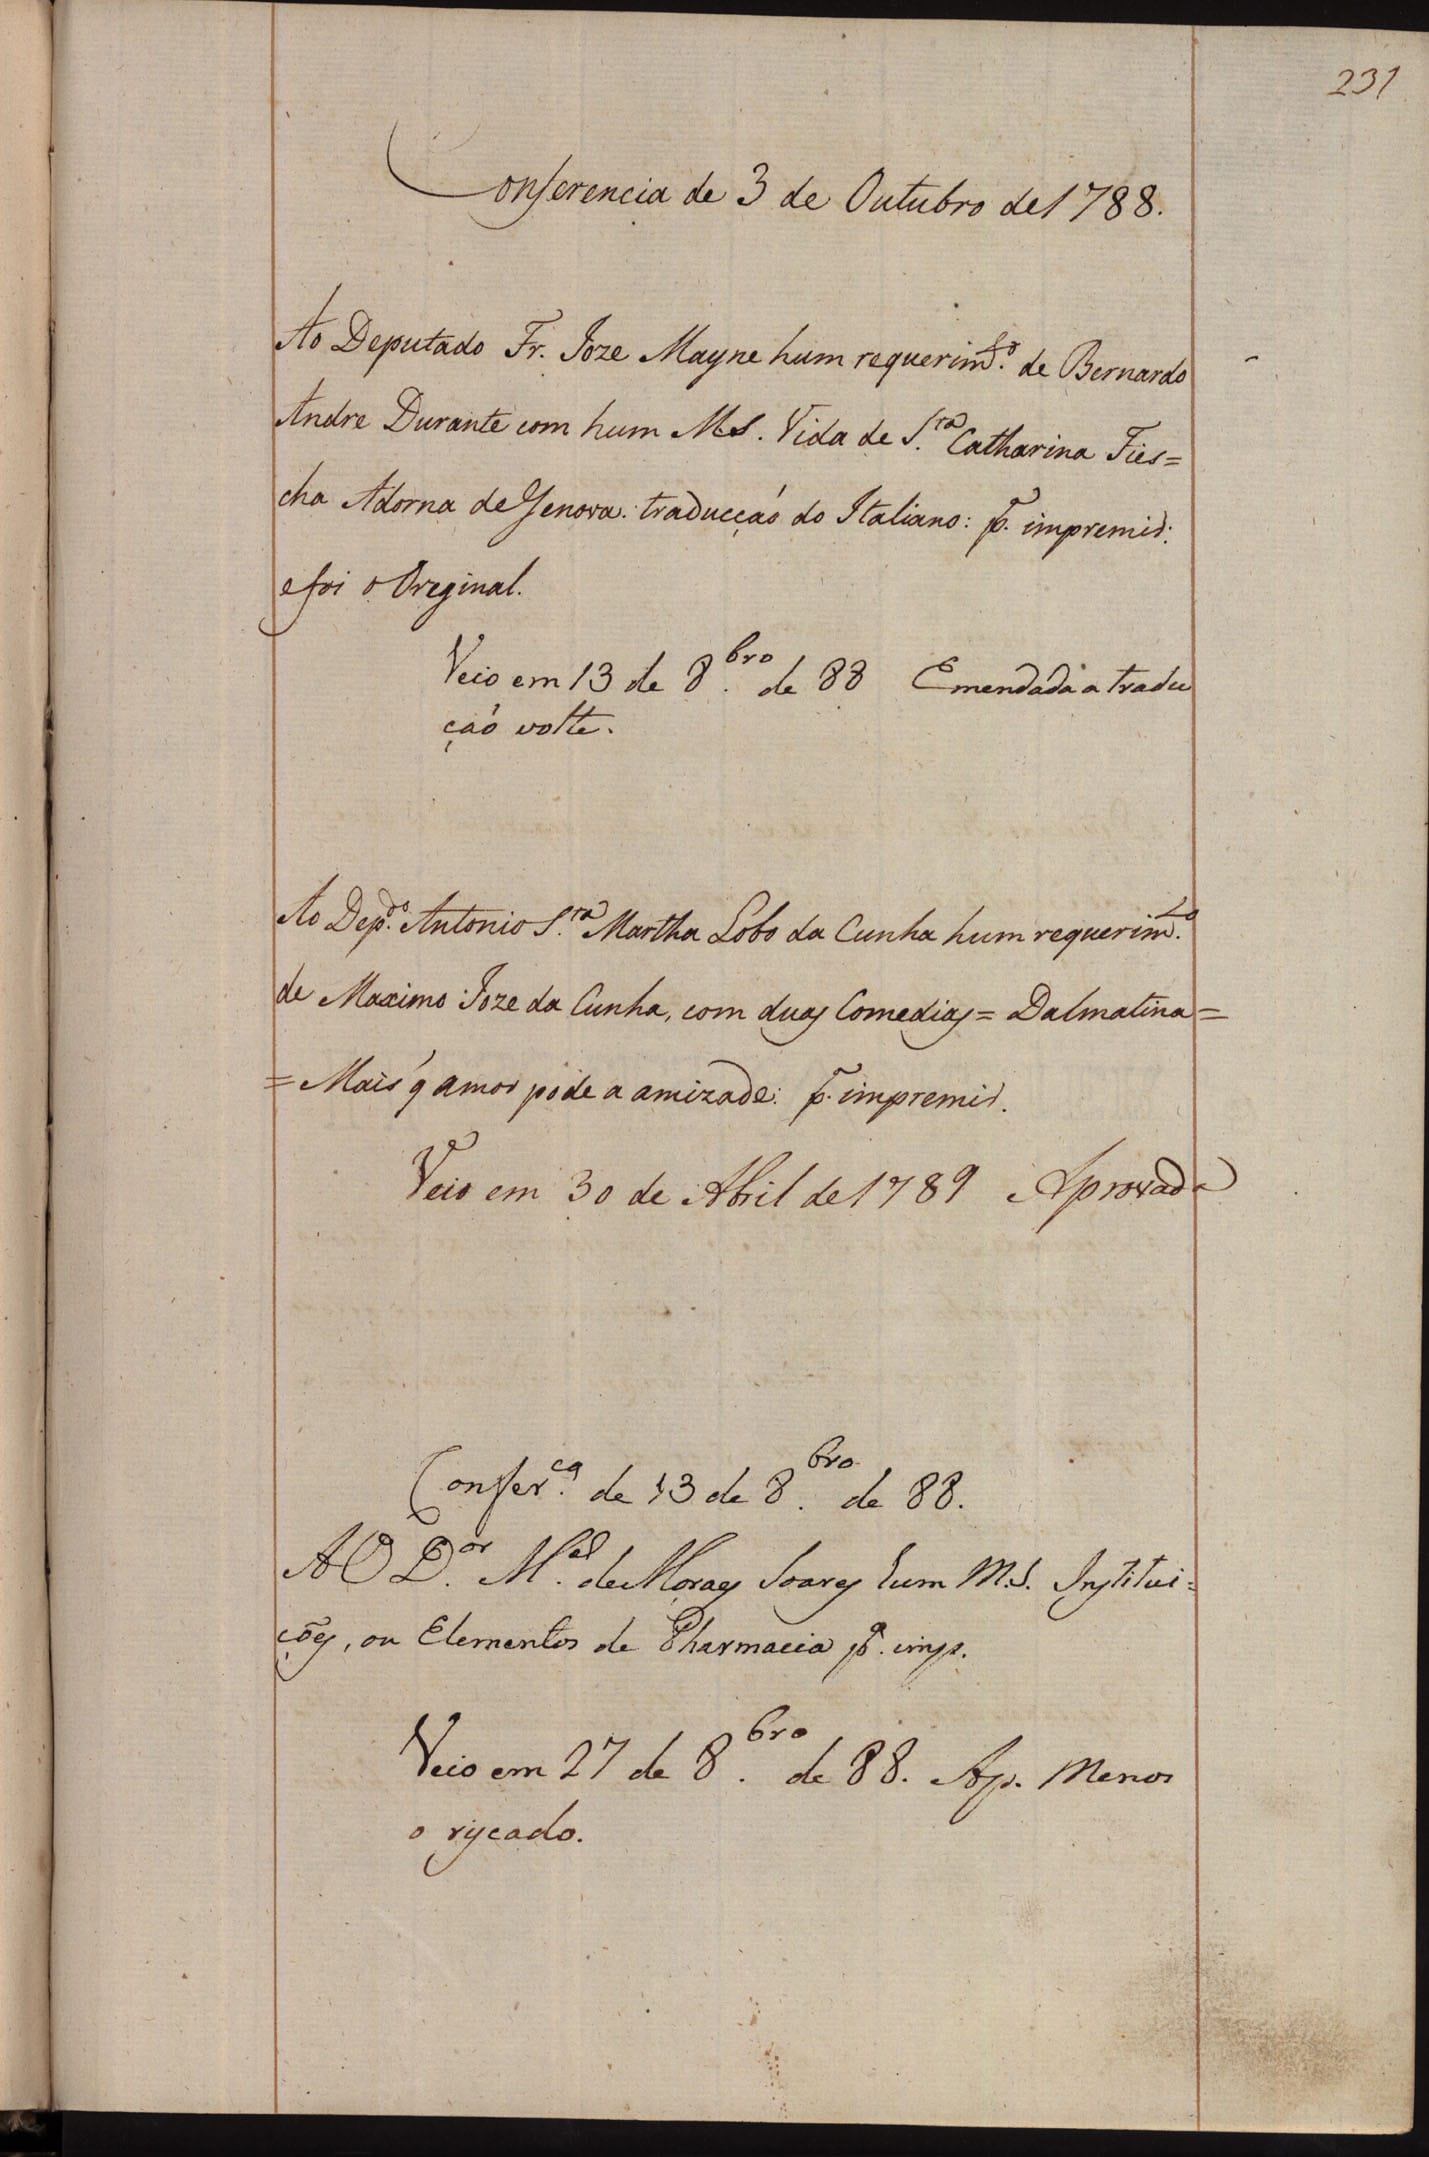 231
Conferencia de 3 de Outubro de 1788.
Ao Deputado Fr. Joze Mayne hum requerim.to de Bernardo
Andre Durante com hum MS. Vida de S.ta Catharina Fies=
cha Adorna de Genova: traducçaó do Italiano: p.a impremir:
e foi o Oreginal.
Veio em 13 de 8.bro de 88 Emendada a tradu
çaó volte.
Ao Dep.do Antonio S.ta Martha Lobo da Cunha hum requerim.to
de Maximo Joze da Cunha, com duas Comedias = Dalmatina =
= Mais q̃ amor pode a amizade: p.a impremir.
Veio em 30 de Abril de 1789 Aprovada
Confer.ca de 13 de 8.bro de 88.
AO D.or M.el de Moraes Soares hum M.S. Institui=
ções, ou Elementos de Pharmacia p.a imp.
Veio em 27 de 8.bro de 88. Ap. Menos
o riscado.